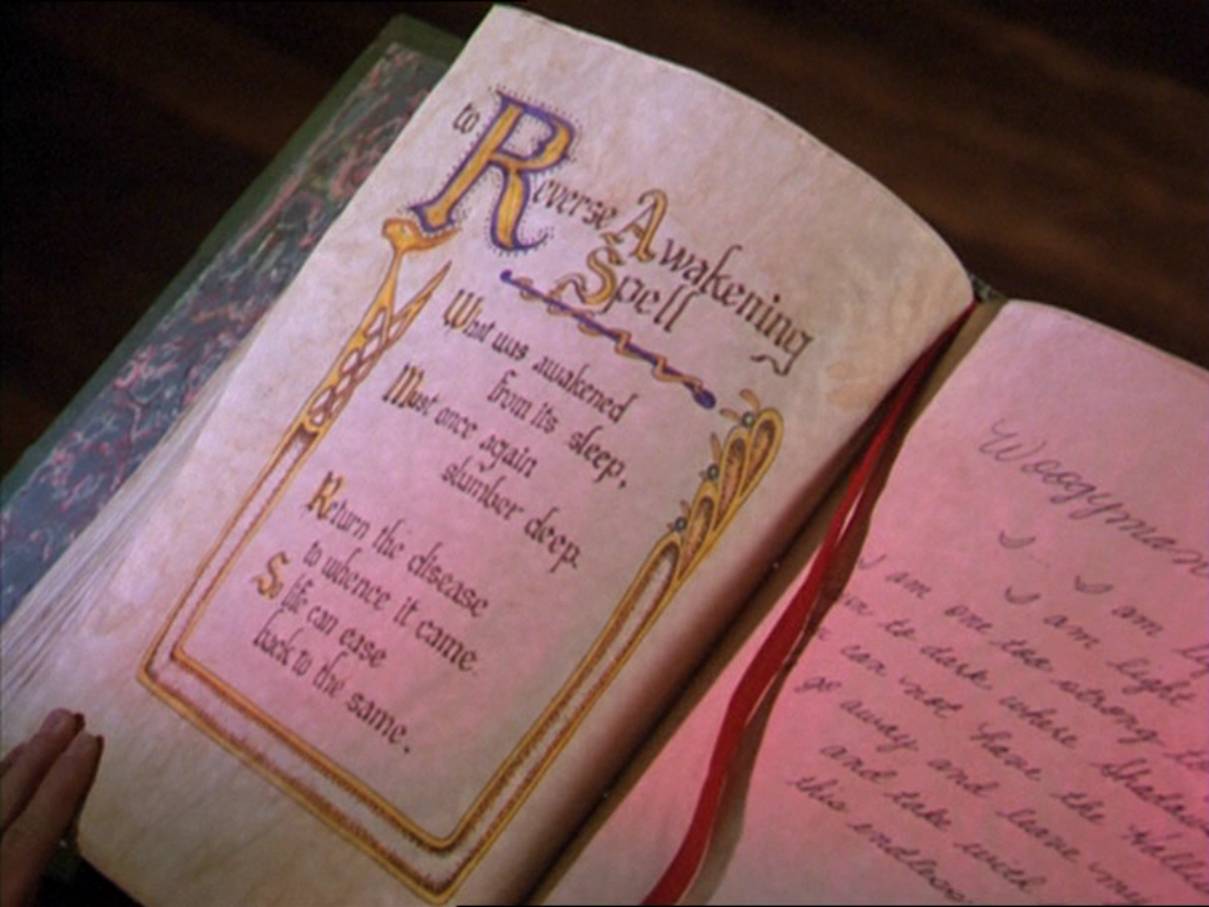 to Reverse Awakening
Spell
What was awakened
from its sleep,
Must once again
slumber deep.
Return the disease
to whence it came.
So life can ease
back to the same.
Woogyman
I am
I am light
I am one too strong
to dark where Shadow
can not have the
go away and leave my
and take with
this endless